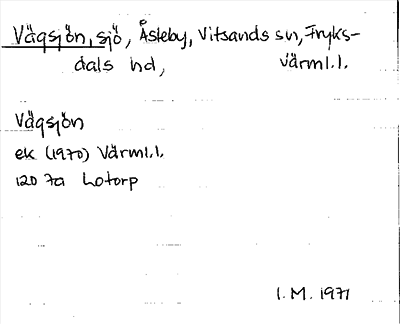 Vägsjön, sjö, Åsleby, Vitsands sn, Fryks-
dals hd, Värml.l.
Vägsjön
ek (1970) Värml.l.
120 7a Lotorp
I.M. 1971